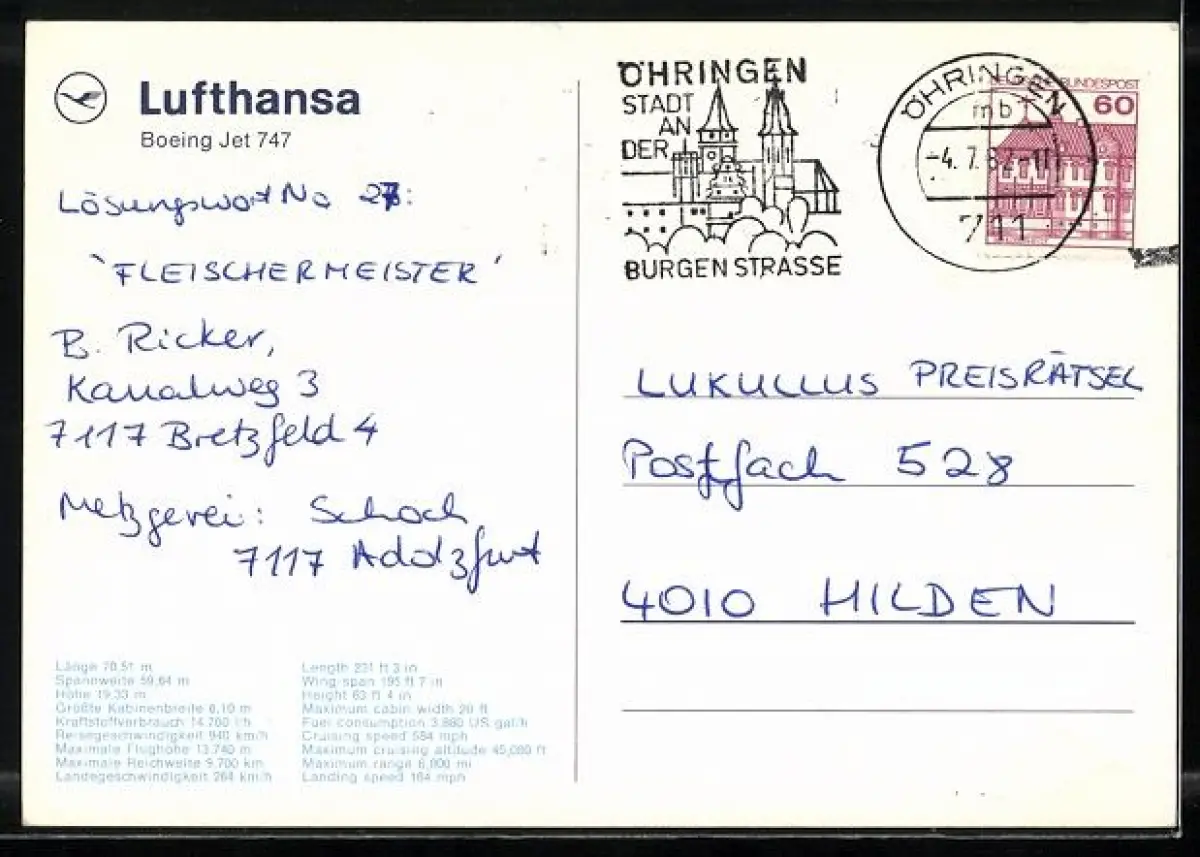 Lufthansa
Boeing Jet 747
Lösungswort No 27:
"FLEISCHERMEISTER"
B. Ricker,
Kanalweg 3
7117 Bretzfeld 4
Metzgerei: Schoch
7117 Adolzfurt
Länge 70,51 m
Spannweite 59,64 m
Höhe 19,33 m
Größte Kabinenbreite 6,10 m
Kraftstoffverbrauch 14.700 l/h
Reisegeschwindigkeit 940 km/h
Maximale Flughöhe 13.740 m
Maximale Reichweite 9.700 km
Landegeschwindigkeit 264 km/h
Length 231 ft 3 in
Wing-span 195 ft 7 in
Height 63 ft 4 in
Maximum cabin width 20 ft
Fuel consumption 3,880 US gal/h
Cruising speed 584 mph
Maximum cruising altitude 45,080 ft
Maximum range 6,000 mi
Landing speed 164 mph
ÖHRINGEN
STADT
AN
DER
BURGENSTRASSE
ÖHRINGEN
mb
-4.7.82-11
711
BUNDESPOST
60
LUKULLUS PREISRÄTSEL
Postfach 528
4010 HILDEN